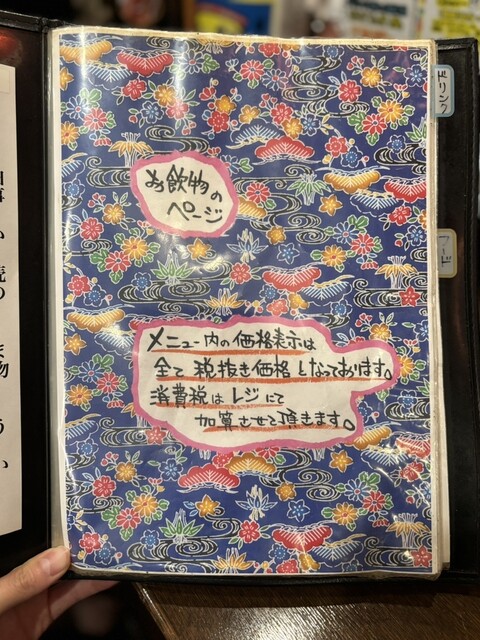 お飲物の
ページ
メニュー内の価格表示は
全て税抜き価格となっております。
消費税はレジにて
加算させて頂きます。
ドリンク
フード